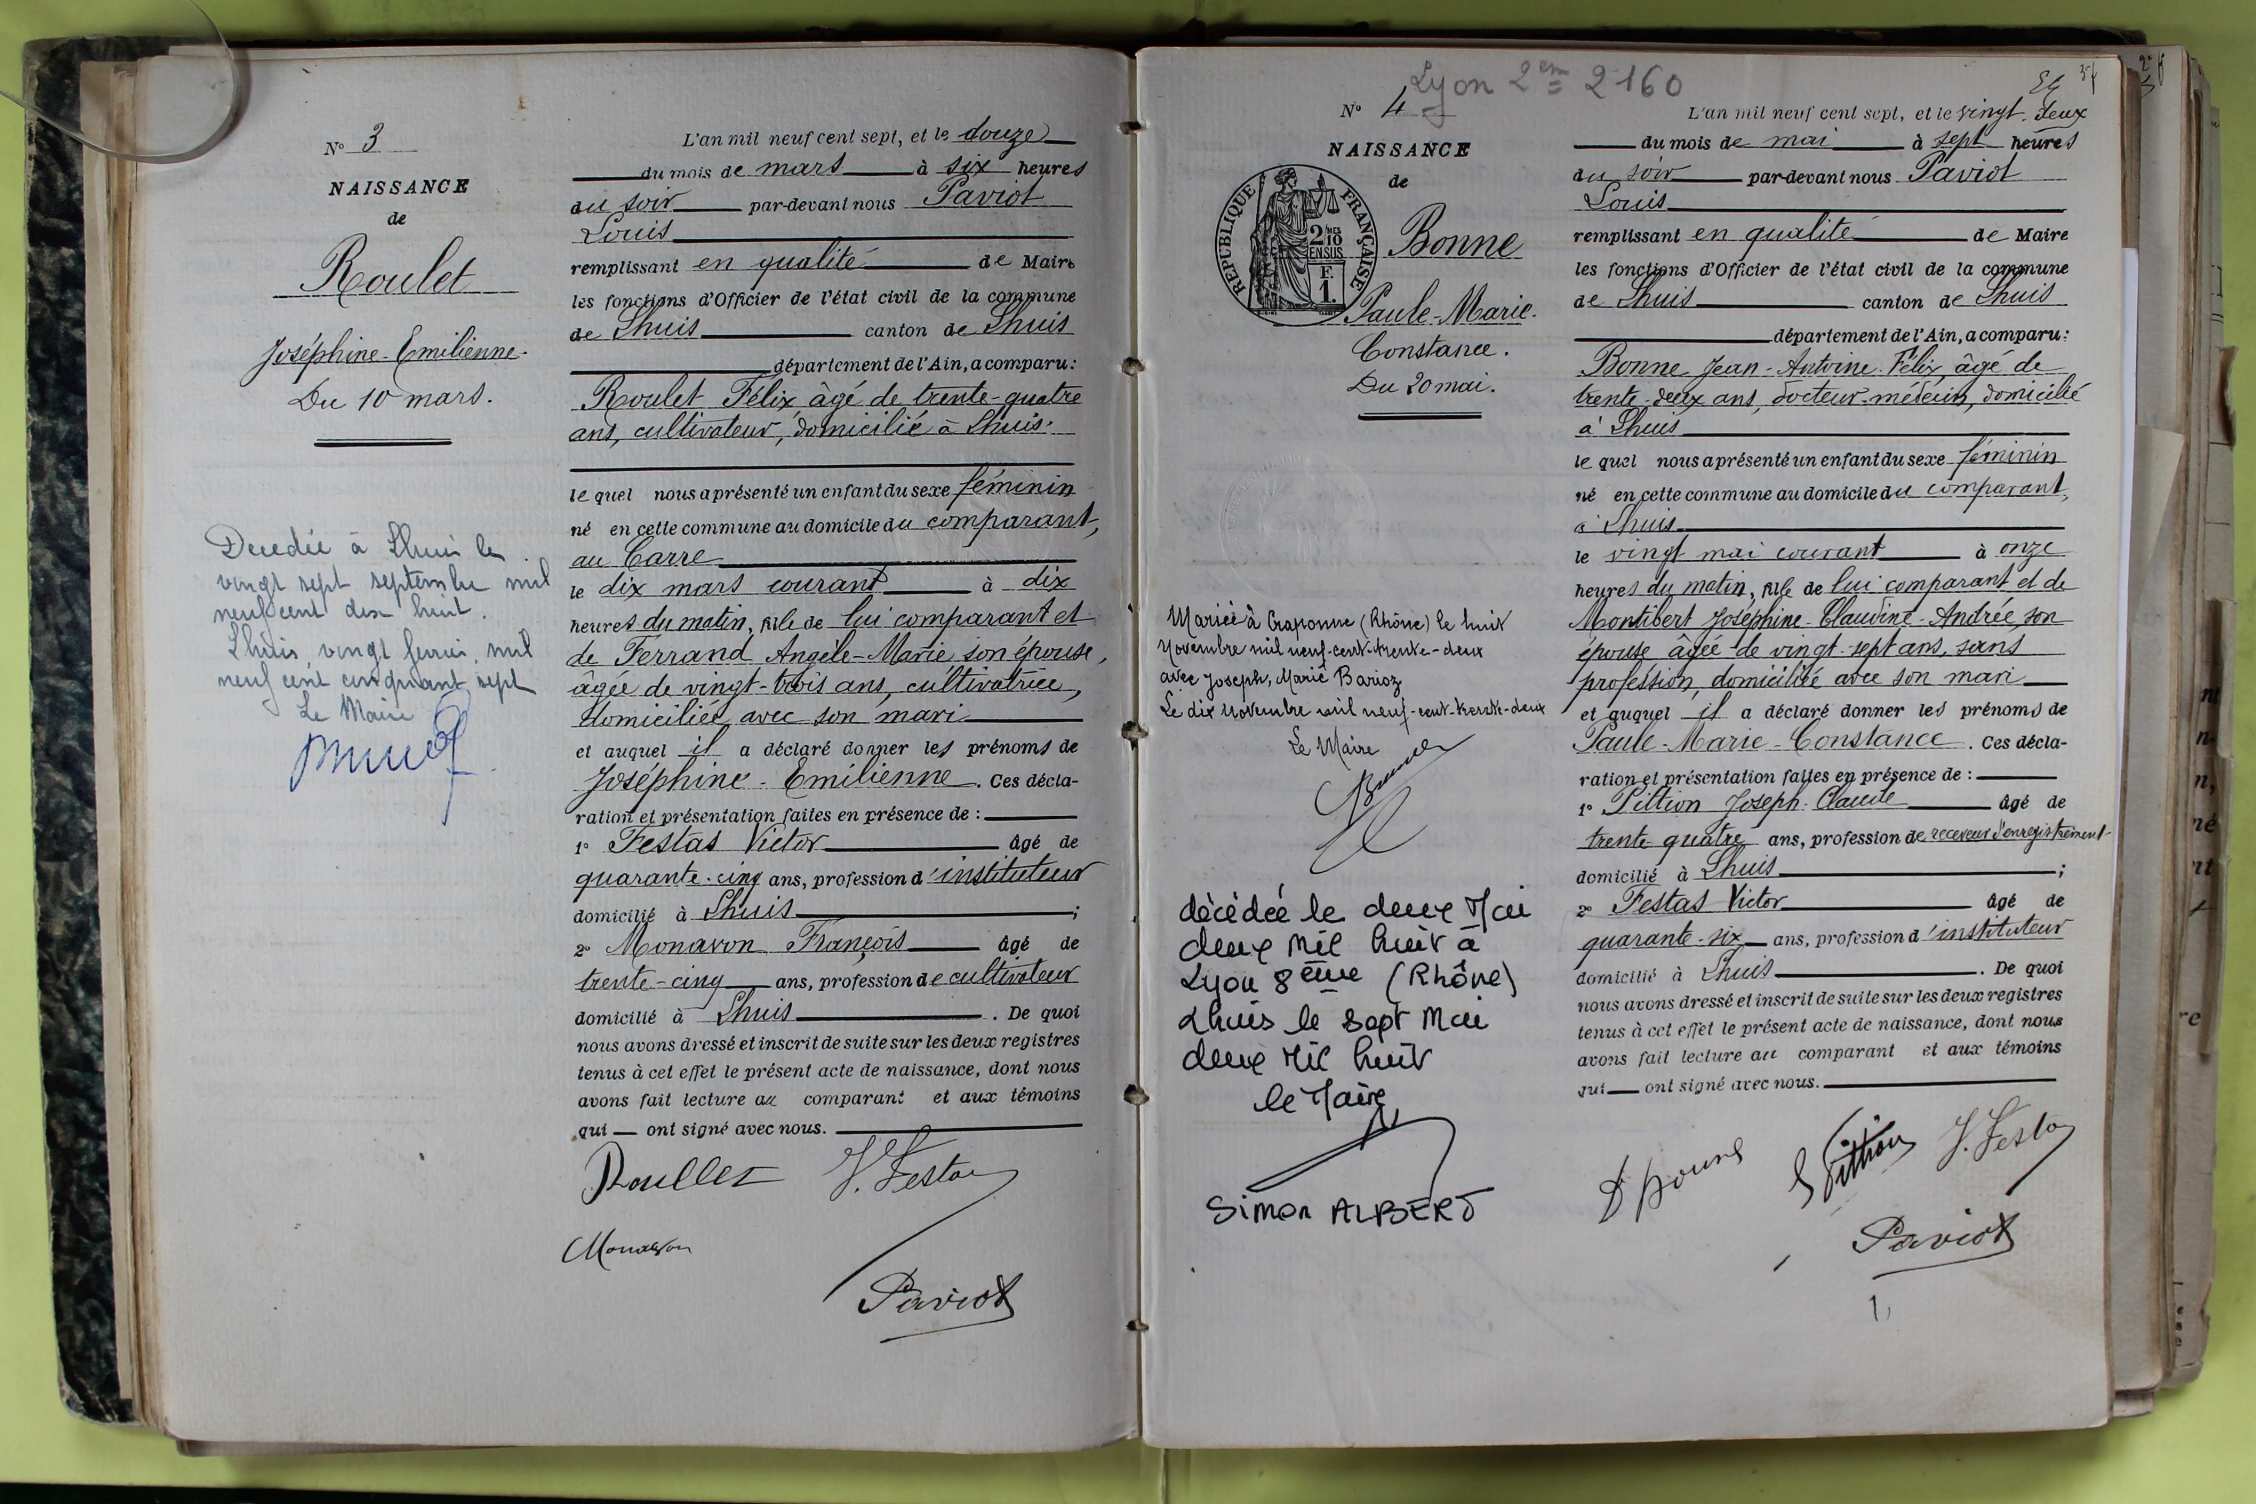 N° 3
NAISSANCE
de
Roulet
Joséphine-Emilienne.
Du 10 mars.
Decedée à Lhuis le
vingt sept septembre mil
neuf cent dix huit.
Lhuis, vingt mil
neuf cent cinquant sept
Le Maire
L'an mil neuf cent sept, et le douze
du mois de mars à six heures
du soir par-devant nous Paviot
Louis
remplissant en qualité de Maire
les fonctions d'Officier de l'état civil de la commune
de Lhuis canton de Lhuis
département de l'Ain, a comparu:
Roulet Félix âgé de trente-quatre
ans, cultivateur, domicilié à Lhuis
le quel nous a présenté un enfant du sexe féminin
né en cette commune au domicile du comparant,
au Carre
le dix mars courant à dix
heures du matin, fille de lui comparant et
de Ferrand Angèle-Marie son épouse,
âgée de vingt-trois ans, cultivatrice,
domiciliée avec son mari
et auquel il a déclaré donner les prénoms de
Joséphine-Emilienne. Ces décla-
ration et présentation faites en présence de :
1° Festas Victor âgé de
quarante-cinq ans, profession d'instituteur
domicilié à Lhuis ;
2° Monavon François âgé de
trente-cinq ans, profession de cultivateur
domicilié à Lhuis. De quoi
nous avons dressé et inscrit de suite sur les deux registres
tenus à cet effet le présent acte de naissance, dont nous
avons fait lecture au comparant et aux témoins
qui ont signé avec nous.
Roullet V. Festas
Monavon
Paviot
Lyon 2em 2160
54
N° 4
NAISSANCE
de
RÉPUBLIQUE FRANÇAISE
2/10
EN SUS
F.
1.
Bonne
Paule-Marie.
Constance.
Du 20 mai.
Mariée à Craponne (Rhône) le huit
Novembre mil neuf-cent-trente-deux
avec Joseph, Marie Barioz
Le dix Novembre mil neuf-cent-trente-deux
Le Maire
décédée le deux Mai
deux mil huit à
Lyon 8ème (Rhône)
Lhuis le sept Mai
deux mil huit
le Maire
Simon ALBERT
L'an mil neuf cent sept, et le vingt-deux
du mois de mai à sept heures
du soir par-devant nous Paviot
Louis
remplissant en qualité de Maire
les fonctions d'Officier de l'état civil de la commune
de Lhuis canton de Lhuis
département de l'Ain, a comparu:
Bonne Jean-Antoine-Félix, âgé de
trente-deux ans, docteur-médecin, domicilié
à Lhuis
le quel nous a présenté un enfant du sexe féminin
né en cette commune au domicile du comparant,
à Lhuis
le vingt mai courant à onze
heures du matin, fille de lui comparant et de
Montibert Joséphine-Claudine-Andrée, son
épouse âgée de vingt-sept ans, sans
profession, domiciliée avec son mari
et auquel il a déclaré donner les prénoms de
Paule-Marie-Constance. Ces décla-
ration et présentation faites en présence de :
1° Pittion Joseph-Claude âgé de
trente quatre ans, profession de receveur d'enregistrement
domicilié à Lhuis ;
2° Festas Victor âgé de
quarante-six ans, profession d'instituteur
domicilié à Lhuis. De quoi
nous avons dressé et inscrit de suite sur les deux registres
tenus à cet effet le présent acte de naissance, dont nous
avons fait lecture au comparant et aux témoins
qui ont signé avec nous.
Bonne Pittion V. Festas
Paviot